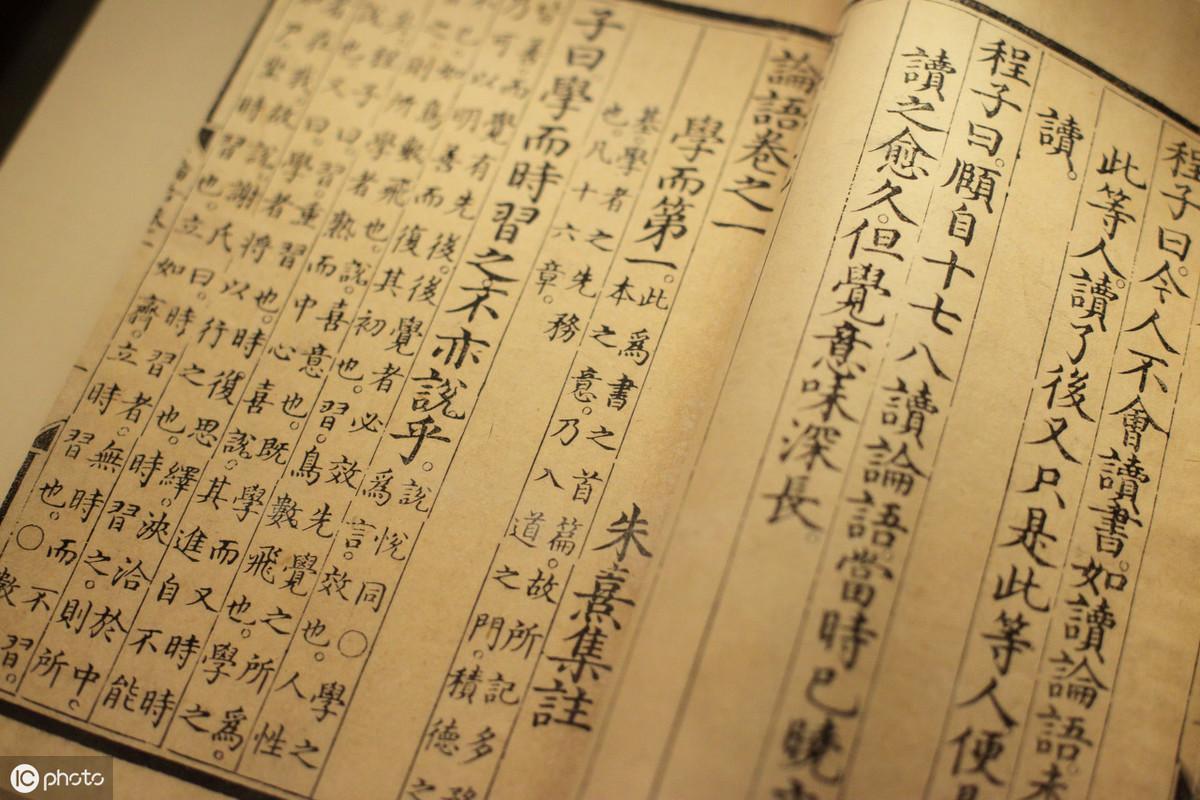 程子曰。今人不會讀書。如讀論語。未
此等人。讀了後又只是此等人。便
讀。
程子曰。頤自十七八讀論語。當時已曉
讀之愈久。但覺意味深長。
論語卷之一
朱熹集註
學而第一。此為書之首篇。故所記多
本之意。乃入道之門。積德之
基學者之先務
也。凡十六章。
子曰學而時習之不亦說乎。說悅同○學之
為言。效也。人性
皆善而覺有先後。後覺者必效先覺之所為。
乃可以明善而復其初也。習。鳥數飛也。學之
不已如鳥數飛也。說喜意也。既學而又時時
習之則所學者熟。而中心喜說。其進自不能
已矣。程子曰。習重習也。時復思繹。浹洽於中。
則說也。又曰。學者將以行之也。時習之。則所
學者在我。故說。謝氏曰。時習者。無時而不習。
尸坐時習也。立如齊。立時習也。○
IC photo